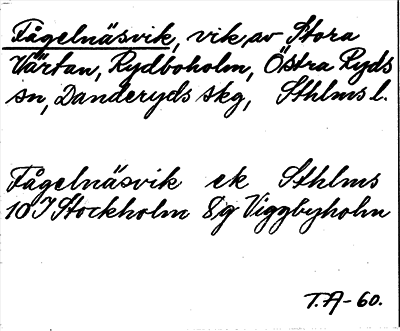 Fågelnäsvik, vik av Stora
Värtan, Rydboholm, Östra Ryds
sn, Danderyds skg, Sthlms l.
Fågelnäsvik ek Sthlms
10 I Stockholm 8g Viggbyholm
T.A-60.